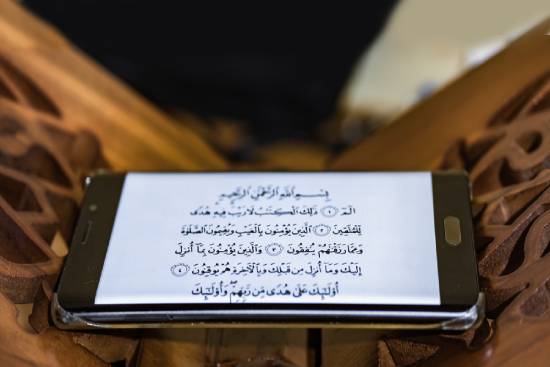 بِسْمِ اللَّهِ الرَّحْمَٰنِ الرَّحِيمِ
الٓمٓ ١ ذَٰلِكَ الْكِتَٰبُ لَا رَيْبَ فِيهِ هُدًى
لِّلْمُتَّقِينَ ٢ الَّذِينَ يُؤْمِنُونَ بِالْغَيْبِ وَيُقِيمُونَ الصَّلَوٰةَ
وَمِمَّا رَزَقْنَٰهُمْ يُنفِقُونَ ٣ وَالَّذِينَ يُؤْمِنُونَ بِمَآ أُنزِلَ
إِلَيْكَ وَمَآ أُنزِلَ مِن قَبْلِكَ وَبِالْآخِرَةِ هُمْ يُوقِنُونَ ٤
أُوْلَٰٓئِكَ عَلَىٰ هُدًى مِّن رَّبِّهِمْ وَأُوْلَٰٓئِكَ